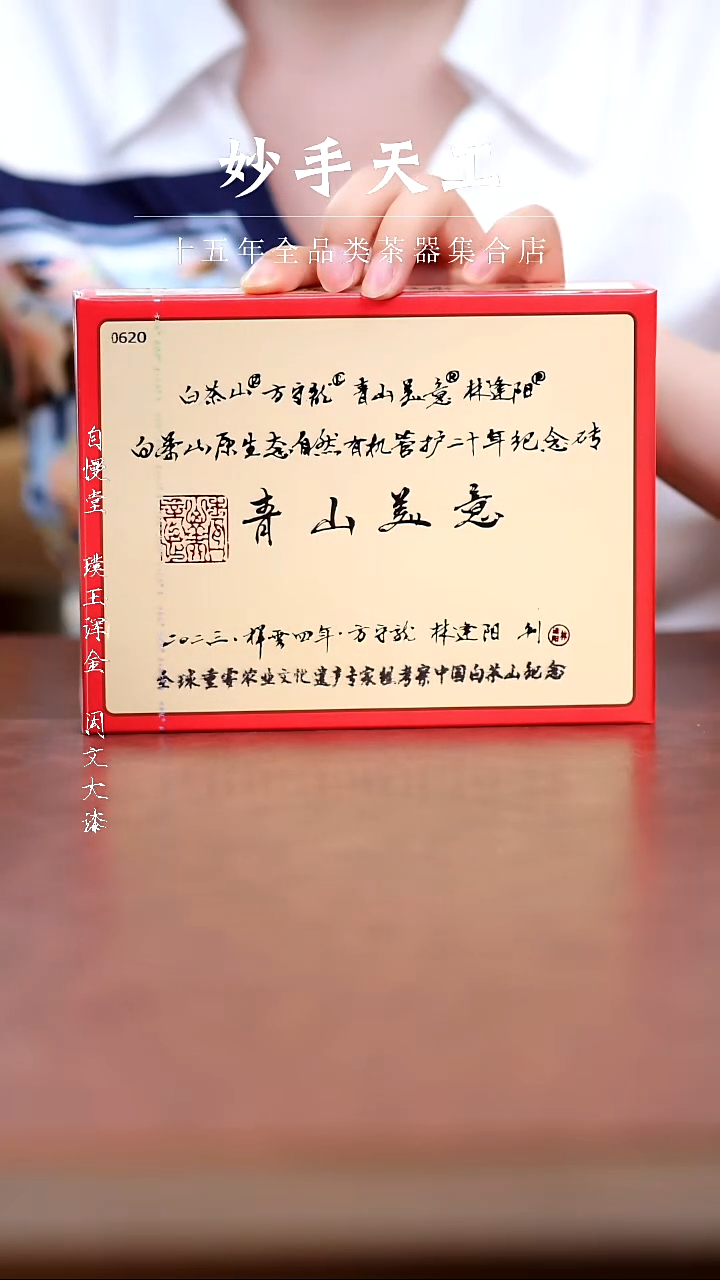 妙手天工
十五年全品类茶器集合店
0620
白茶山® 方守龙® 青山美意® 林達阳®
白茶山原生态自然有机管护二十年纪念砖
青山美意
二〇二三·祥云四年·方守龙 林達阳 制
全球重要农业文化遗产专家组考察中国白茶山纪念
自慢堂 璞玉浑金 闵文大漆